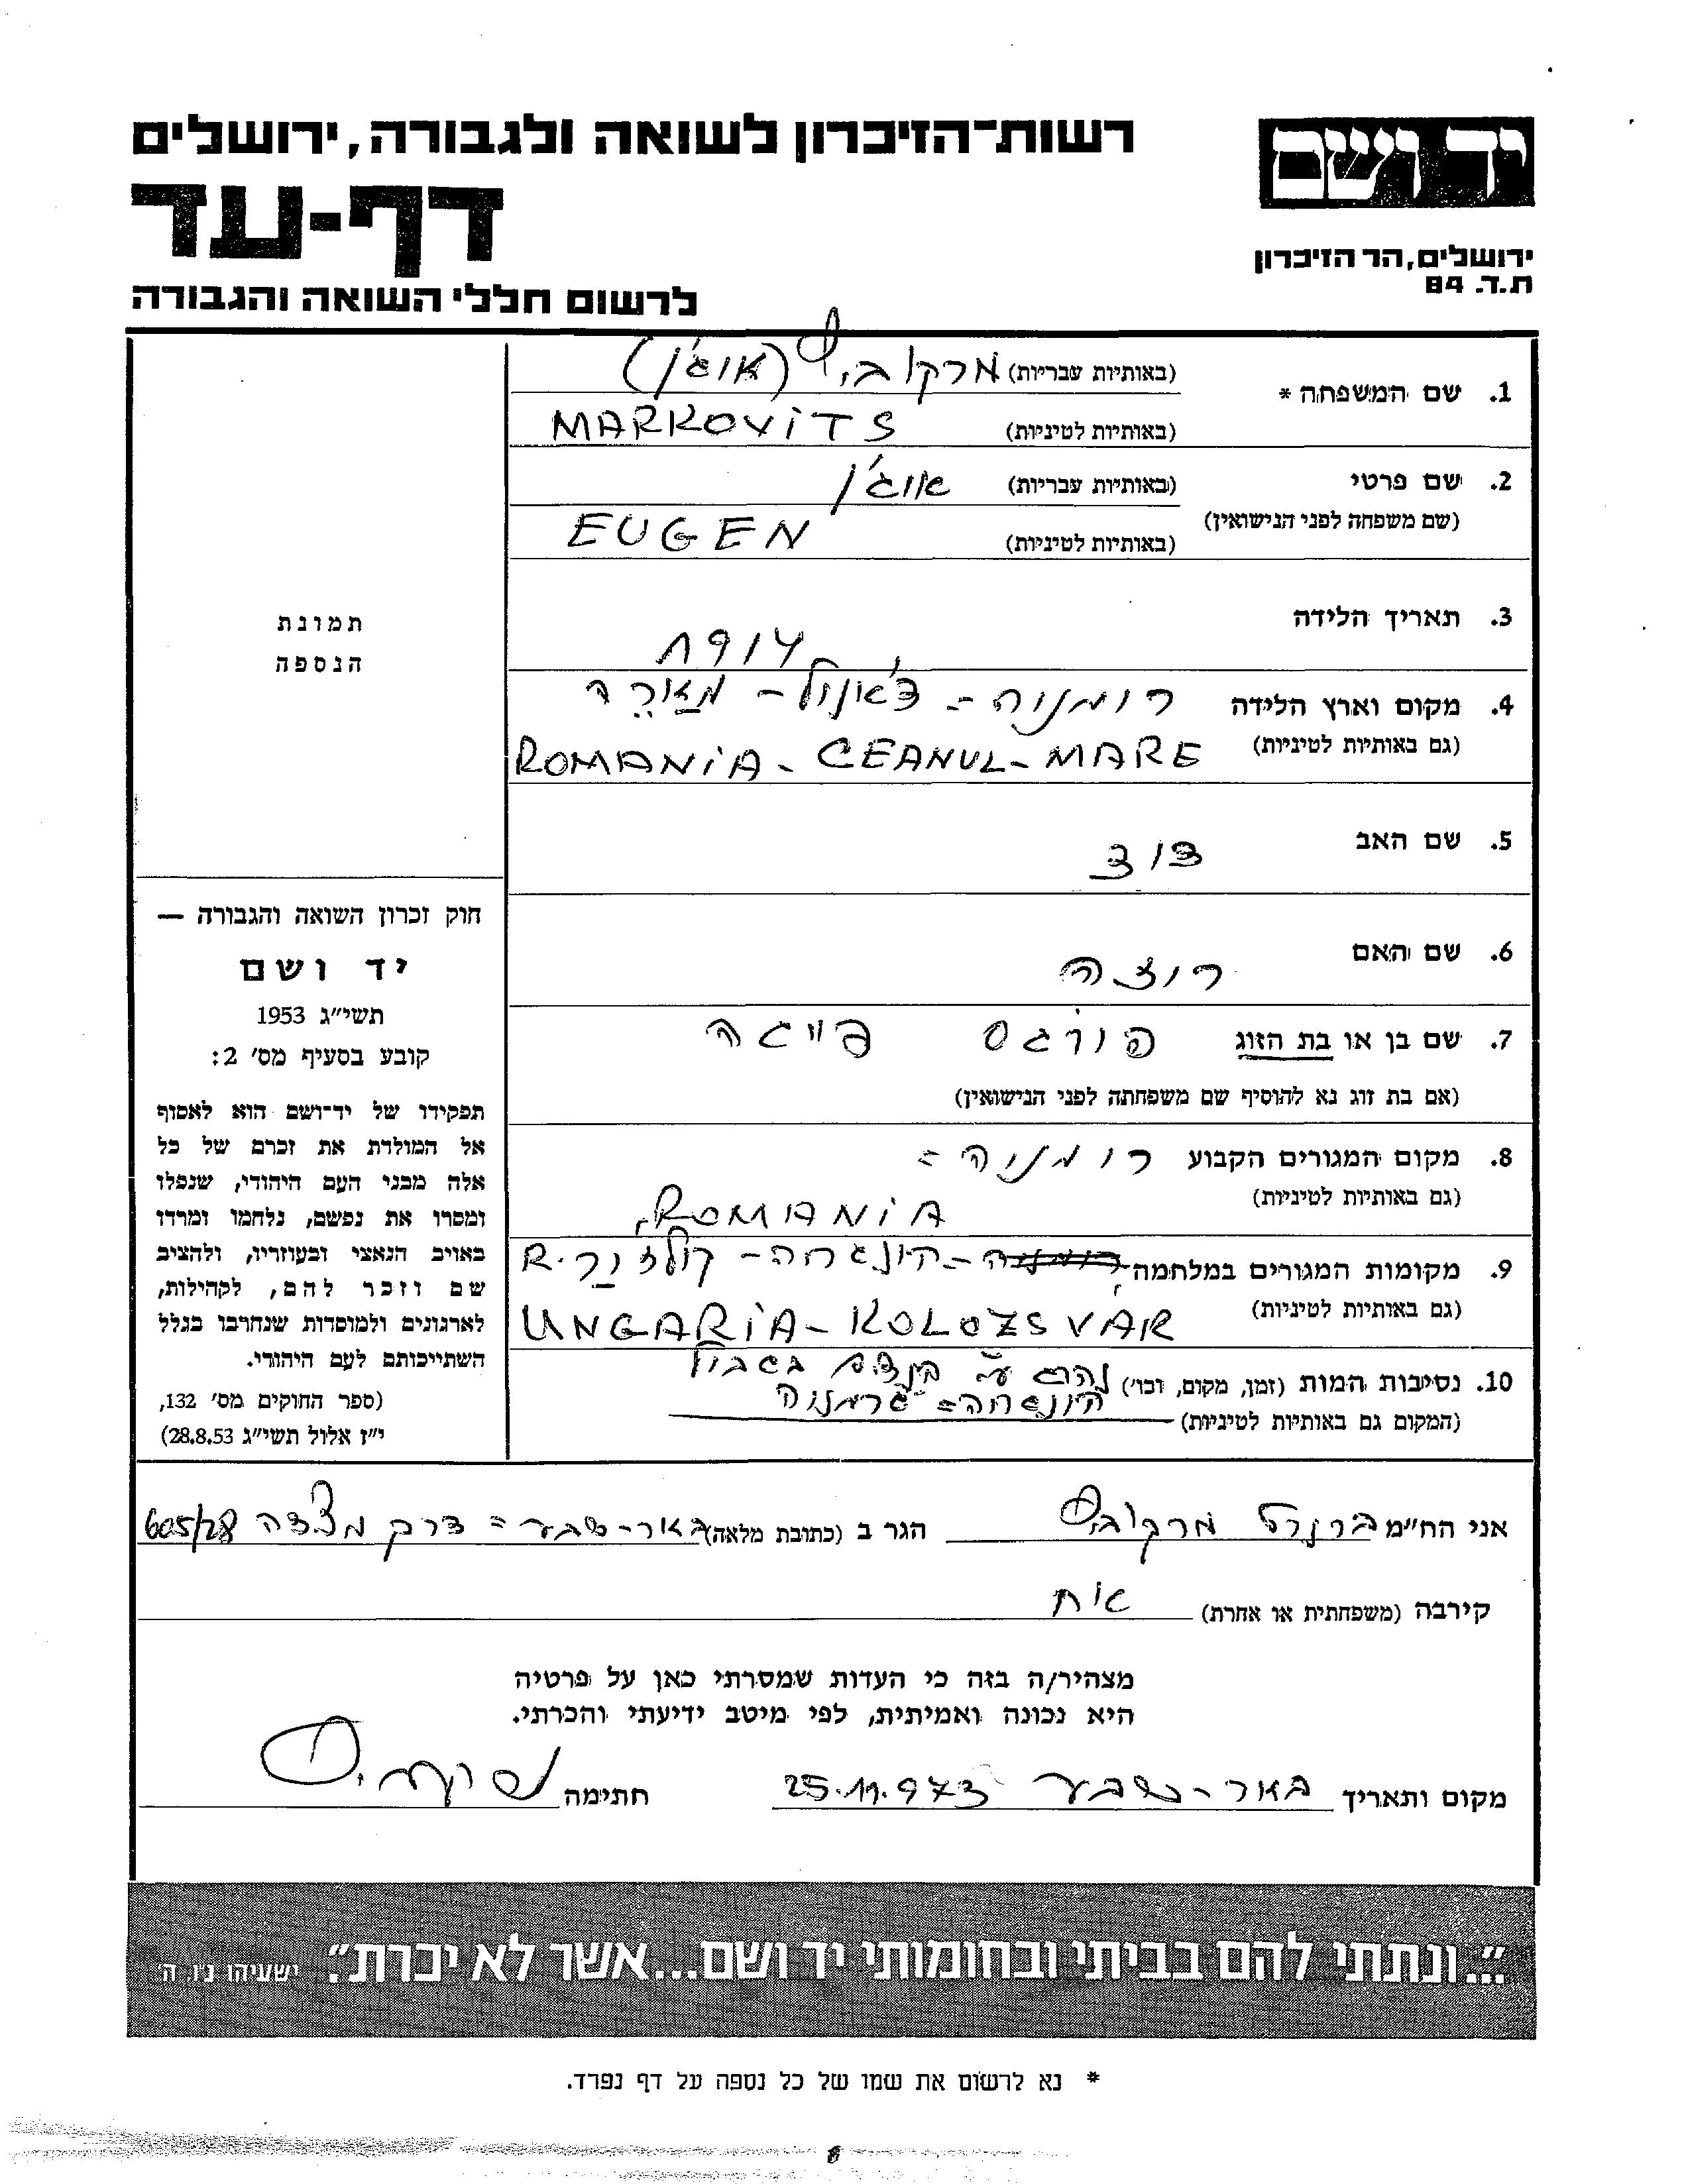 יד ושם
ירושלים, הר הזיכרון
ת.ד. 84
רשות־הזיכרון לשואה ולגבורה, ירושלים
דף-עד
לרשום חללי השואה והגבורה
1. שם המשפחה * (באותיות עבריות) מרקוביץ (אוג'ן)
(באותיות לטיניות) MARKOVITS
2. שם פרטי (באותיות עבריות) אוג'ן
(שם משפחה לפני הנישואין)
(באותיות לטיניות) EUGEN
3. תאריך הלידה 1914
4. מקום וארץ הלידה רומניה - צ'אנול - מארה
(גם באותיות לטיניות) ROMANIA - CEANUL - MARE
5. שם האב דוד
6. שם האם רוזה
7. שם בן או בת הזוג פורגס פייגה
(אם בת זוג נא להוסיף שם משפחתה לפני הנישואין)
8. מקום המגורים הקבוע רומניה -
(גם באותיות לטיניות) ROMANIA
9. מקומות המגורים במלחמה רומניה - הונגריה - קולוז'ור. R
(גם באותיות לטיניות) UNGARIA - KOLOZSVAR
10. נסיבות המות (זמן, מקום, וכו') נהרג ע"י בגבול
(המקום גם באותיות לטיניות) הונגריה - גרמניה
תמונת
הנספה
חוק זכרון השואה והגבורה —
יד ושם
תשי"ג 1953
קובע בסעיף מס' 2:
תפקידו של יד־ושם הוא לאסוף
אל המולדת את זכרם של כל
אלה מבני העם היהודי, שנפלו
ומסרו את נפשם, נלחמו ומרדו
באויב הנאצי ובעוזריו, ולהציב
שם וזכר להם, לקהילות,
לארגונים ולמוסדות שנחרבו בגלל
השתייכותם לעם היהודי.
(ספר החוקים מס' 132,
י"ז אלול תשי"ג 28.8.53)
אני הח"מ ברנרד מרקוביץ הגר ב (כתובת מלאה) באר-שבע - דרך מצדה 605/28
קירבה (משפחתית או אחרת) אח
מצהיר/ה בזה כי העדות שמסרתי כאן על פרטיה
היא נכונה ואמיתית, לפי מיטב ידיעתי והכרתי.
מקום ותאריך באר-שבע 25.11.973 חתימה
"...ונתתי להם בביתי ובחומותי יד ושם...אשר לא יכרת". ישעיהו נ"ו, ה'
* נא לרשום את שמו של כל נספה על דף נפרד.